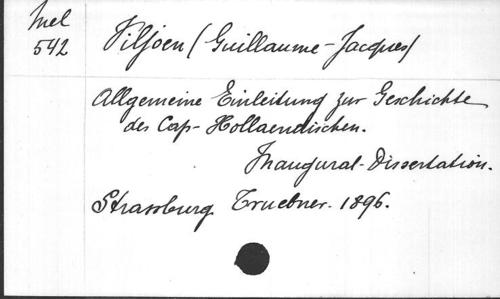 Mel
542
Viljoen (Guillaume-Jacques)
Allgemeine Einleitung zur Geschichte
des Cap-Hollaendischen.
Inaugural-Dissertation.
Strassburg. Truebner. 1896.